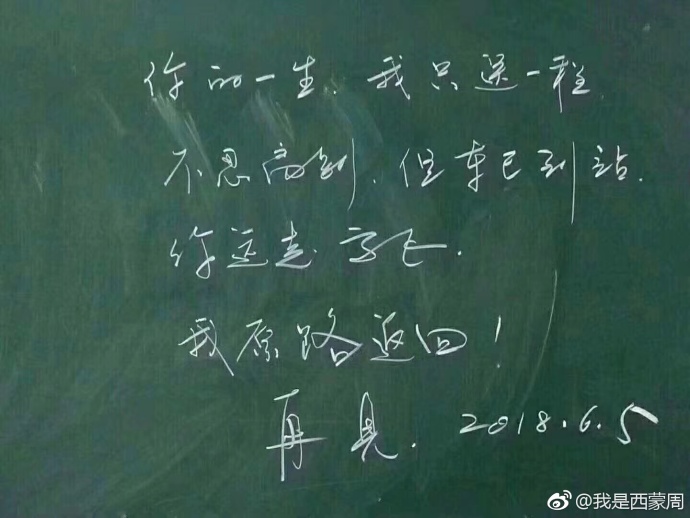 你的一生，我只送一程
不忍离别，但车已到站.
你远走高飞.
我原路返回！
再见. 2018.6.5
@我是西蒙周